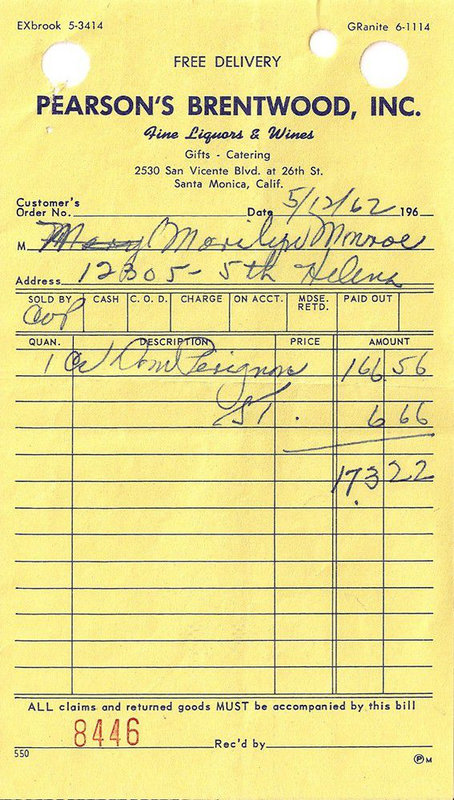 EXbrook 5-3414 GRanite 6-1114
FREE DELIVERY
PEARSON'S BRENTWOOD, INC.
Fine Liquors & Wines
Gifts - Catering
2530 San Vicente Blvd. at 26th St.
Santa Monica, Calif.
Customer's
Order No. Date 5/12/62 196
M Mary Marilyn Monroe
Address 12305 - 5th Helena
SOLD BY CASH C. O. D. CHARGE ON ACCT. MDSE. RETD. PAID OUT
QUAN. DESCRIPTION PRICE AMOUNT
1 Cs Dom Perignon 166.56
ST. 6 66
173 22
ALL claims and returned goods MUST be accompanied by this bill
8446 Rec'd by
550 P M